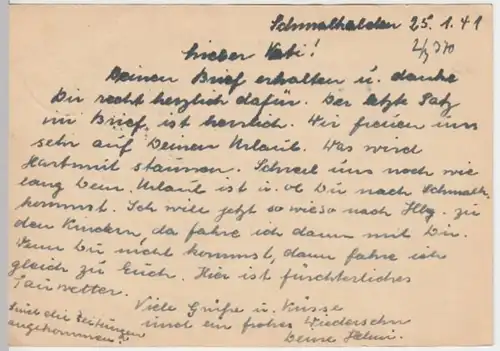 Schmalkalden 25.1.41
Lieber Vati!
Deinen Brief erhalten u. danke
Dir recht herzlich dafür. Der letzte Satz
im Brief ist herrlich. Wir freuen uns
sehr auf Deinen Urlaub. Was wird
Hartmut staunen. Schreib uns noch wie
lang Dein Urlaub ist u. ob Du nach Schmalk.
kommst. Ich will jetzt sowieso nach Hbg. zu
den Kindern, da fahre ich dann mit Dir.
Wenn Du nicht kommst, dann fahre ich
gleich zu Euch. Hier ist fürchterliches
Tauwetter.
Viele Grüße u. Küsse
und ein frohes Wiedersehn
Deine
Sind die Zeitungen
angekommen?